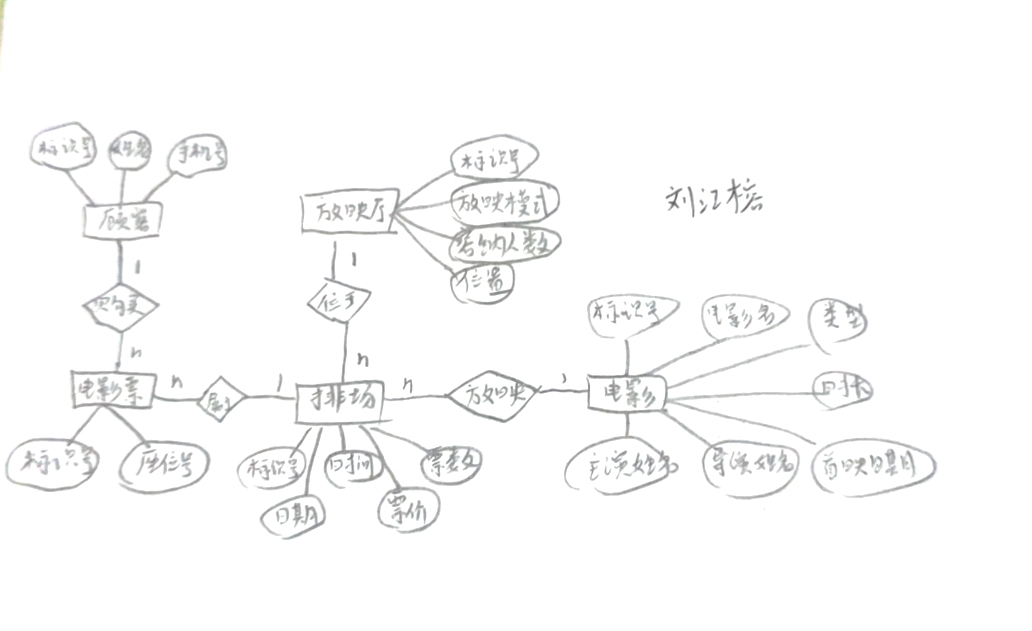 标识号 姓名 手机号
顾客
1
购买
n
电影票
标识号 座位号
n 属于 1
放映厅
标识号
放映模式
容纳人数
位置
1
位于
n
排场
标识号 日期 时间 票价 票数
n 放映 1
电影
标识号 电影名 类型
时长
主演姓名 导演姓名 首映日期
刘江榕